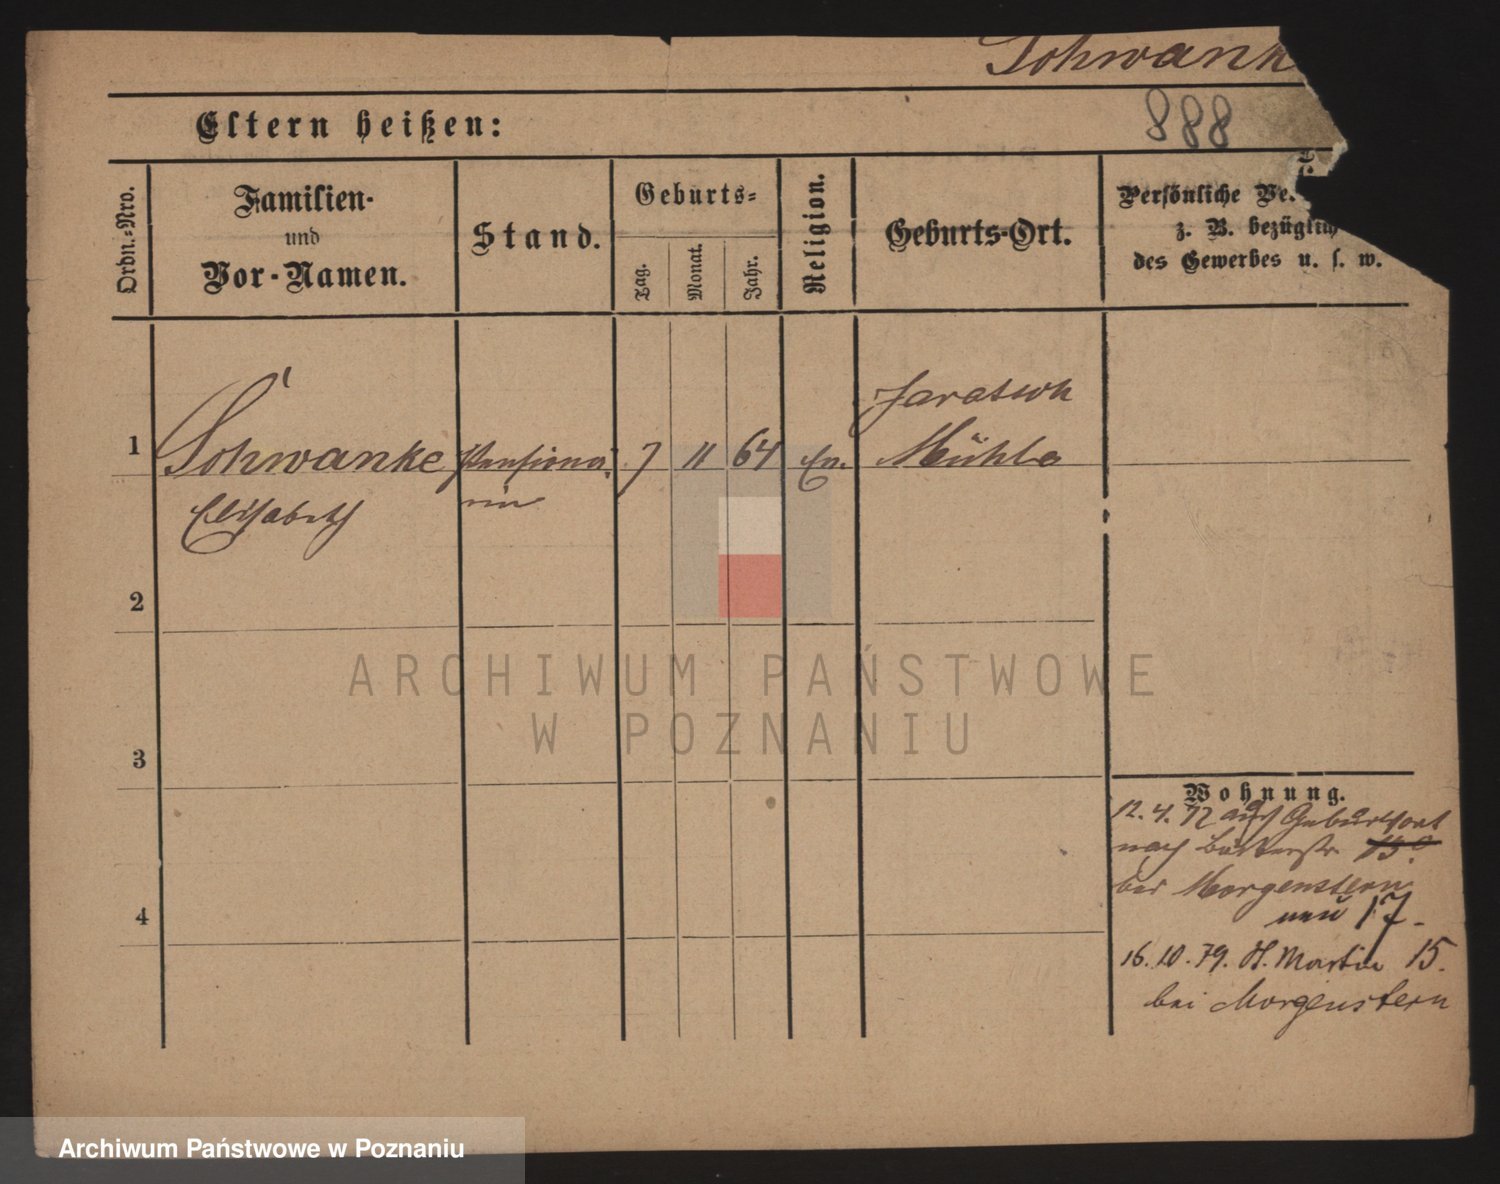 Schwank
888
Eltern heißen:
Ordn.-Nro.
Familien-
und
Vor-Namen.
Stand.
Geburts-
Tag.
Monat.
Jahr.
Religion.
Geburts-Ort.
Persönliche Ve
z. B. bezüglich
des Gewerbes u. s. w.
1
Schwanke
Elisabeth
Pensionä-
rin
7
11
64
Ev.
Jaratsch
Mühle
2
3
4
Wohnung.
12. 4. 72 aus Geburtsort
nach Bäckerstr. 13
bei Morgenstern
neu 17.
16. 10. 79. St. Martin 15.
bei Morgenstern
ARCHIWUM PAŃSTWOWE
W POZNANIU
Archiwum Państwowe w Poznaniu